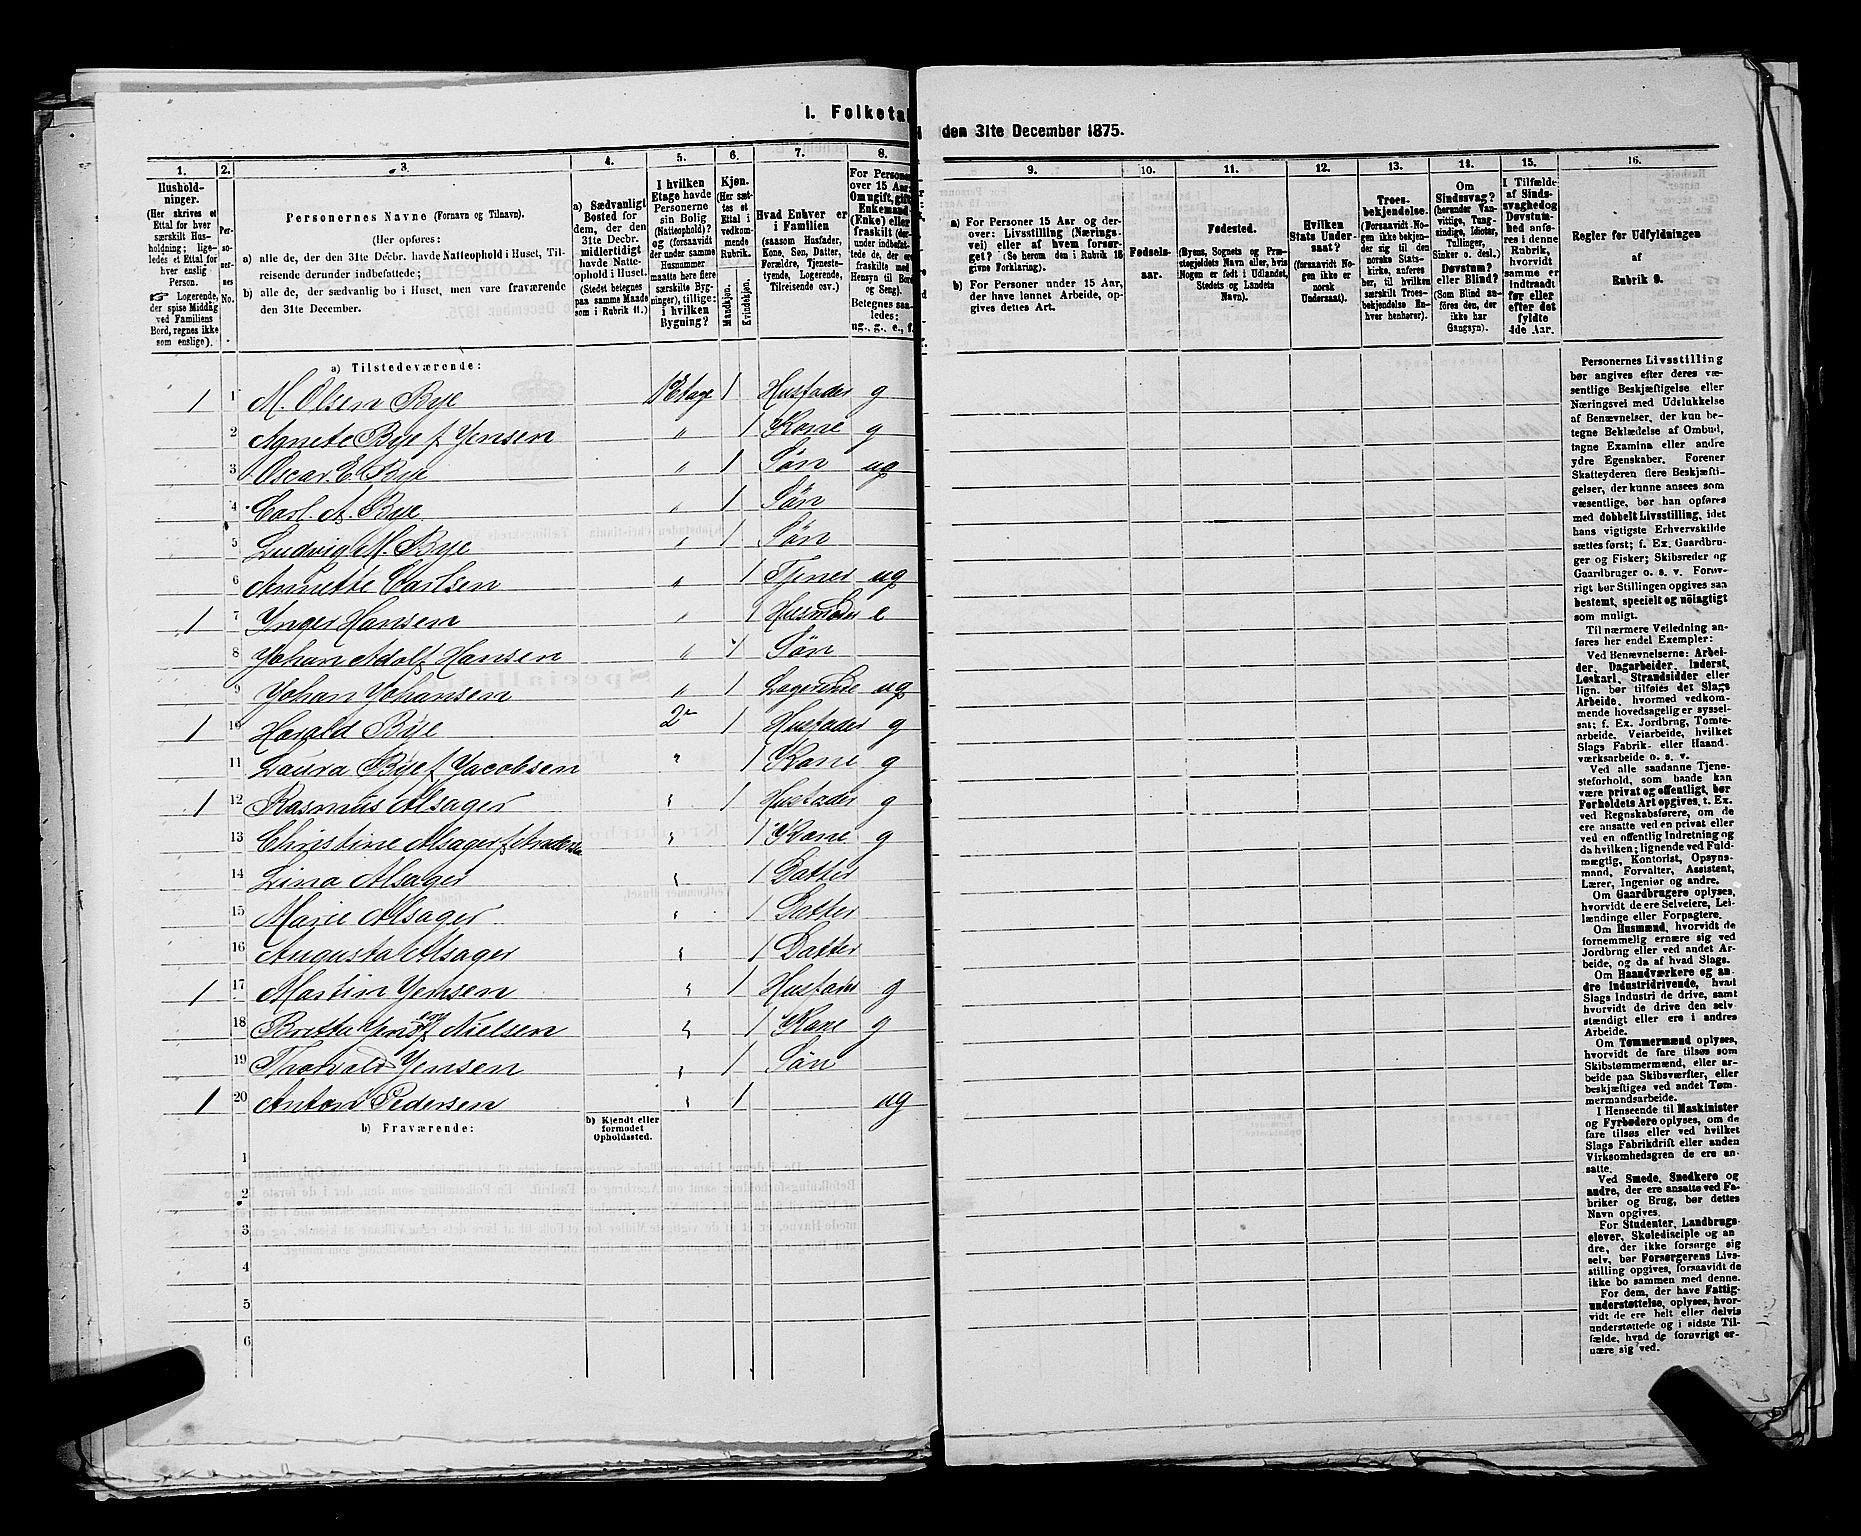 I. Folketal den 31te December 1875.
1. 2. 3. 4. 5. 6. 7. 8. 9. 10. 11. 12. 13. 14. 15. 16.
Husholdninger. (Her skrives et Ettal for hver særskilt Husholdning; ligeledes et Ettal for hver enslig Person. ☞ Logerende, der spise Middag ved Familiens Bord, regnes ikke som enslige).
Personernes No.
Personernes Navne (Fornavn og Tilnavn).
(Her opføres:
a) alle de, der den 31te Decbr. havde Natteophold i Huset, Tilreisende derunder indbefattede;
b) alle de, der sædvanlig bo i Huset, men vare fraværende den 31te December.
a) Sædvanligt Bosted for dem, der den 31te Decbr. midlertidigt havde Natteophold i Huset. (Stedet betegnes paa samme Maade som i Rubrik 11.)
I hvilken Etage havde Personerne sin Bolig (Natteophold)? og (forsaavidt der under samme Husnummer maatte høre flere særskilte Bygninger), tillige: i hvilken Bygning?
Kjøn. (Her sættes et Ettal i vedkommende Rubrik. Mandkjøn. Kvindekjøn.
Hvad Enhver er i Familien (saasom Husfader, Kone, Søn, Datter, Forældre, Tjenestetyende, Logerende, Tilreisende osv.)
For Personer over 15 Aar: Om ugift, gift, Enkemand (Enke) eller fraskilt
Betegnes saaledes: ug., g., e., f.
a) For Personer 15 Aar og derover: Livsstilling (Næringsvei) eller af hvem forsørget? (Se herom den i Rubrik 16 givne Forklaring).
b) For Personer under 15 Aar, der have lønnet Arbeide, opgives dettes Art.
Fødselsaar.
Fødested. (Byens, Sognets og Præstegjeldets Navn eller, hvis Nogen er født i Udlandet, Stedets og Landets Navn).
Hvilken Stats Undersaat? (forsaavidt Nogen ikke er norsk Undersaat).
Troesbekjendelse. (Forsaavidt Nogen ikke bekjender sig til den norske Statskirke, anføres her, til hvilken særskilt Troesbekjendelse Enhver henhører).
Om Sindssvag? (herunder Vanvittige, Tungsindige, Idioter, Tullinger, Sinker o. desl.) Døvstum? eller Blind? (Som Blind anføres den, der ikke har Gangsyn).
I Tilfælde af Sindssvaghed og Døvstumhed anføres i denne Rubrik, hvorvidt samme er indtraadt før eller efter det fyldte 4de Aar.
Regler for Udfyldningen af Rubrik 9.
a) Tilstedeværende:
1 1 M. Olsen Bye 1 Etage 1 Husfader g
2 Agnete Bye f Jensen " 1 Kone g
3 Oscar E. Bye " 1 Søn ug
4 Carl. A. Bye " 1 Søn
5 Ludvig M. Bye " 1 Søn
6 Annette Carlsen " 1 Tjener ug
1 7 Inger Hansen " 1 Husmoder e
8 Johan Adolf Hansen " 1 Søn
9 Johan Johansen " 1 Logerende ug
1 10 Harald Bye 2 " 1 Husfader g
11 Laura Bye f Jacobsen " 1 Kone g
1 12 Rasmus Alsager " 1 Husfader g
13 Christine Alsager f Andersen " 1 Kone g
14 Lina Alsager " 1 Datter
15 Marie Alsager " 1 Datter
16 Augusta Alsager " 1 Datter
1 17 Martin Jensen " 1 Husfader g
18 Britta Jensen f Nielsen " 1 Kone g
19 Thorvald Jensen " 1 Søn
1 20 Anton Pedersen " 1 ug
b) Fraværende: b) Kjendt eller formodet Opholdssted.
1
2
3
4
5
6
Personernes Livsstilling
bør angives efter deres væsentlige Beskjæftigelse eller
Næringsvei med Udelukkelse
af Benævnelser, der kun betegne Beklædelse af Ombud,
tagne Examina eller andre
ydre Egenskaber. Forener
Skatteyderen flere Beskjæftigelser, der kunne ansees som
væsentlige, bør han opføres
med dobbelt Livsstilling, idet
hans vigtigste Erhvervskilde
sættes først; f. Ex. Gaardbruger og Fisker; Skibsreder og
Gaardbruger o. s. v. Forøvrigt bør Stillingen opgives saa
bestemt, specielt og nöiagtigt
som muligt.
Til nærmere Veiledning anføres her endel Exempler:
Ved Benævnelserne: Arbeider, Dagarbeider, Inderst,
Løskarl, Strandsidder eller
lign. bør tilføies det Slags
Arbeide, hvormed vedkommende hovedsagelig er sysselsat; f. Ex. Jordbrug, Tomtearbeide, Veiarbeide, hvilket
Slags Fabrik- eller Haandværksarbeide o. s. v.
Ved alle saadanne Tjenesteforhold, som baade kan
være privat og offentligt, bør
Forholdets Art opgives, t. Ex.
ved Regnskabsførere, om de
ere ansatte ved en privat eller
ved en offentlig Indretning og
da hvilken; lignende ved Fuldmægtig, Kontorist, Opsynsmand, Forvalter, Assistent,
Lærer, Ingeniør og andre.
Om Gaardbrugere oplyses,
hvorvidt de ere Selveiere, Leilændinge eller Forpagtere.
Om Husmænd, hvorvidt de
fornemmelig ernære sig ved
Jordbrug eller ved andet Arbeide, og da af hvad Slags.
Om Haandværkere og andre Industridrivende, hvad
Slags Industri de drive, samt
hvorvidt de drive den selvstændigt eller ere i andres
Arbeide.
Om Tømmermænd oplyses,
hvorvidt de fare tilsøs som
Skibstømmermænd, eller arbeide paa Skibsværfter, eller
beskjæftiges ved andet Tømmermandsarbeide.
I Henseende til Maskinister
og Fyrbødere oplyses, om de
fare tilsøs eller ved hvilket
Slags Fabrikdrift eller anden
Virksomhedsgren de ere ansatte.
Ved Smede, Snedkere og
andre, der ere ansatte ved Fabriker og Brug, bør dettes
Navn opgives.
For Studenter, Landbrugselever, Skoledisciple og andre, der ikke forsørge sig
selv, bør Forsørgerens Livsstilling opgives, forsaavidt de
ikke bo sammen med denne.
For dem, der have Fattigunderstøttelse, oplyses, hvorvidt de ere helt eller delvis
understøttede og i sidste Tilfælde, hvad de forøvrigt ernære sig ved.